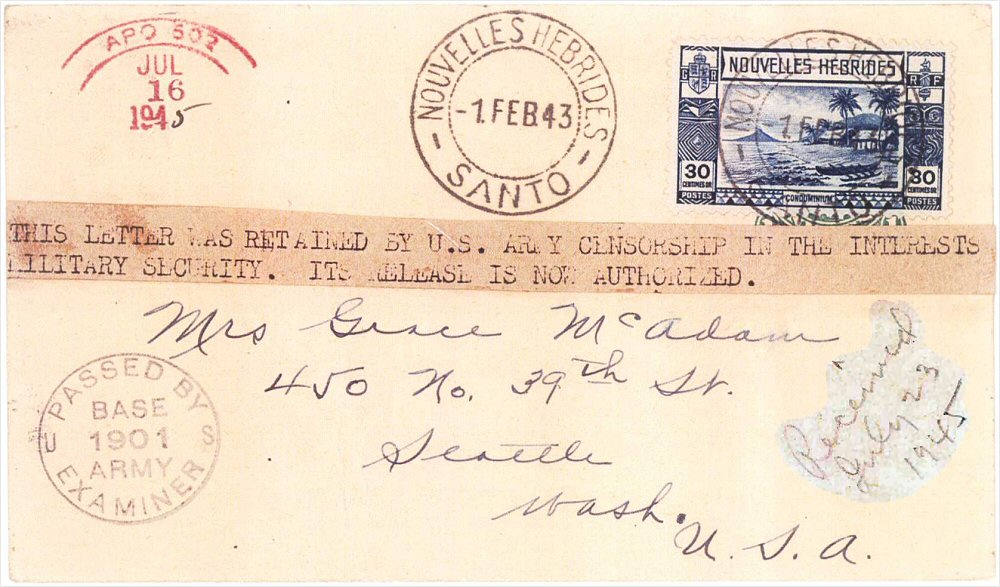 APO 502
JUL
16
1945
NOUVELLES HEBRIDES
-1.FEB.43
- SANTO -
NOUVELLES HÉBRIDES
G R
R F
1.FEB.43
30
CENTIMES OR
POSTES
30
CENTIMES OR
POSTES
CONDOMINIUM
THIS LETTER WAS RETAINED BY U.S. ARMY CENSORSHIP IN THE INTERESTS
MILITARY SECURITY. ITS RELEASE IS NOW AUTHORIZED.
Mrs Grace McAdam
450 No. 39th St.
Seattle
Wash.
U.S.A.
PASSED BY
BASE
1901
ARMY
EXAMINER
U S
Received
July 23
1945